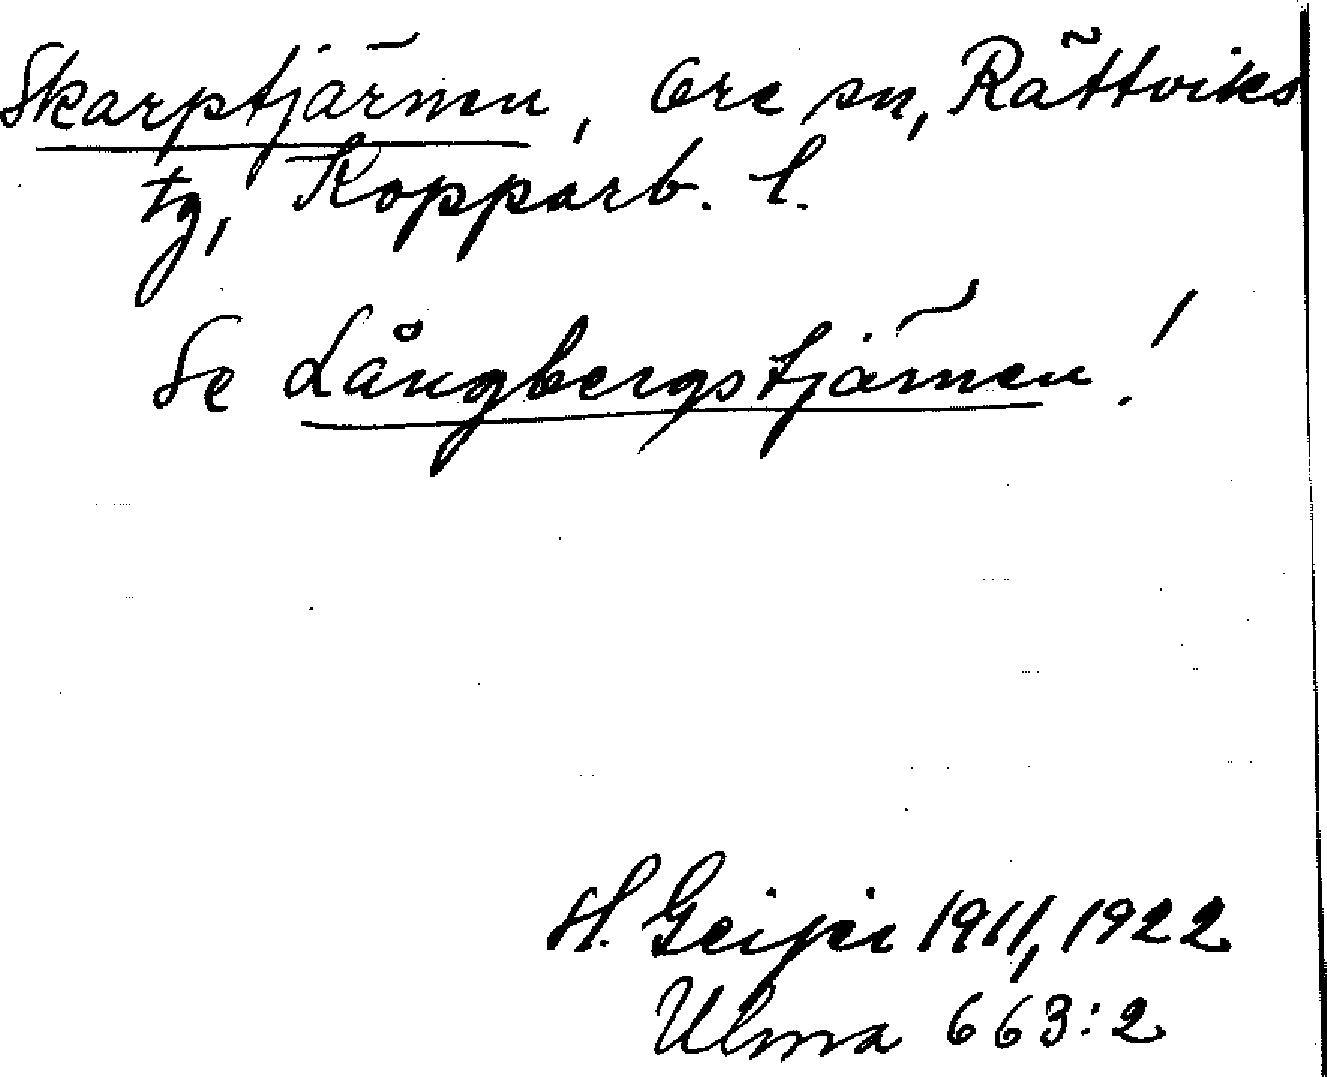 Skarptjärnen, Ore sn, Rättviks
tg, Kopparb. l.
Se Långbergstjärnen!
H. Geijer 1911, 1922
Ulma 663:2